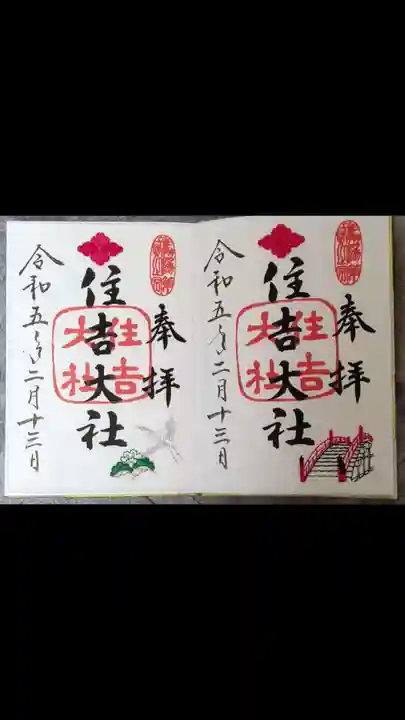 奉拝
住吉大社
住吉大社
令和五年二月十三日
奉拝
住吉大社
住吉大社
令和五年二月十三日